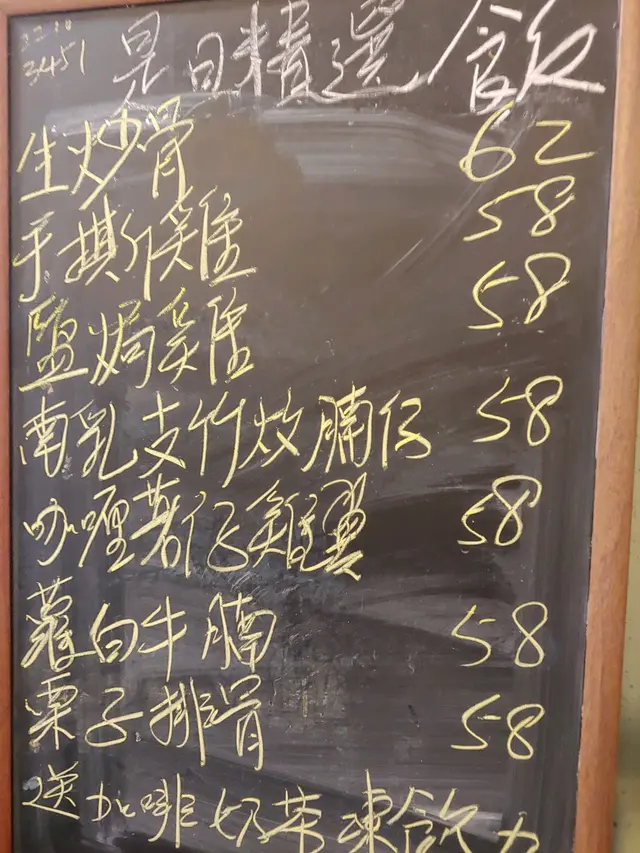 是日精選 飲
生炒骨 62
手撕雞 58
盬焗雞 58
南乳支竹炆腩仔 58
咖喱薯仔雞翼 58
蘿白牛腩 58
栗子排骨 58
送咖啡奶茶凍飲力